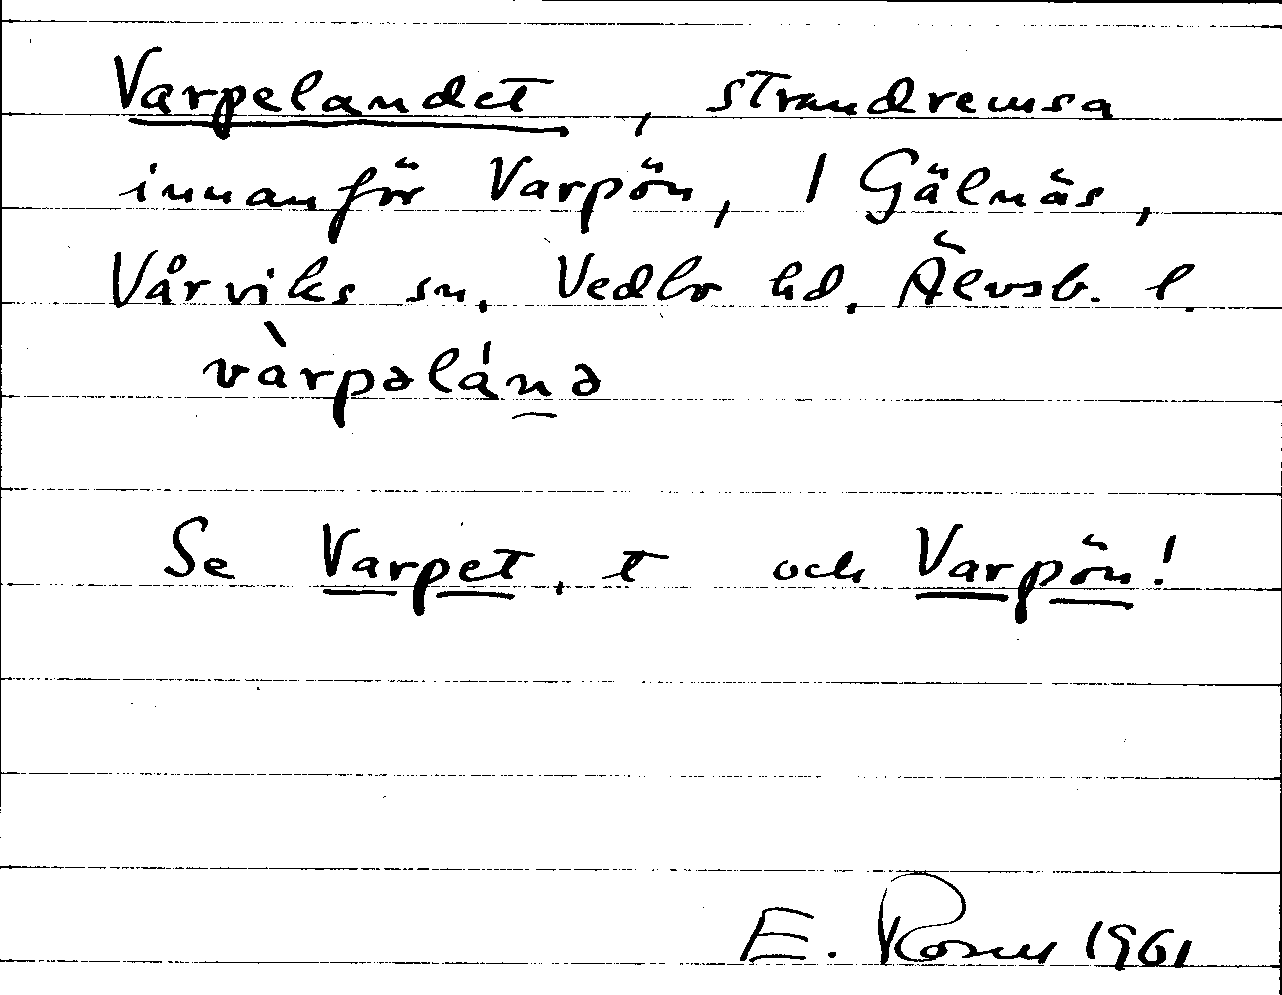 Varpelandet, strandremsa
innanför Varpön, 1 Gälnäs,
Vårviks sn, Vedbo hd, Älvsb. l.
vàrpəlánə
Se Varpet, t och Varpön!
E. Rosen 1961